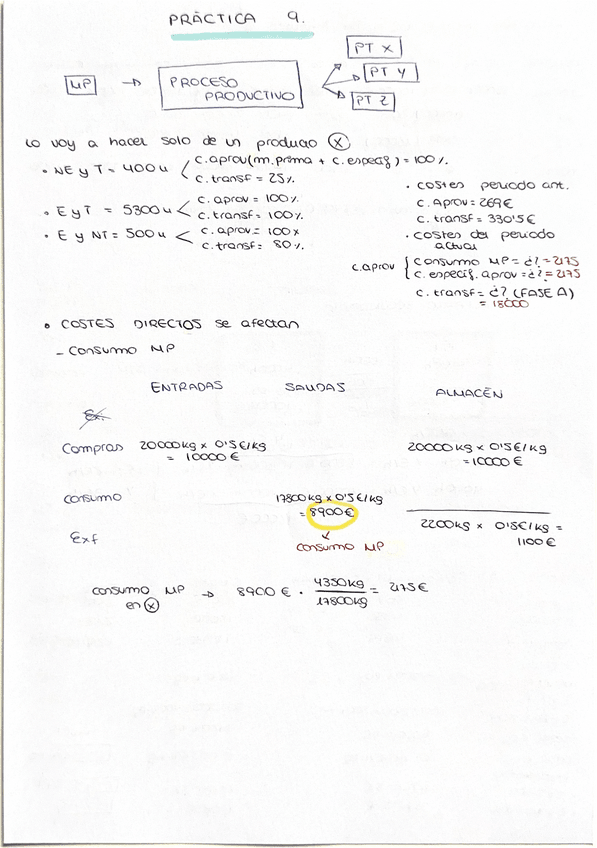 PRÁCTICA 9.
PT X
MP → PROCESO PRODUCTIVO
PT Y
PT Z
Lo voy a hacer solo de un producto X
• NE y T = 400u < c.aprov (m.prima + c.especif) = 100%.
c.transf = 25%
• E y T = 5300u < c.aprov = 100%
c.transf = 100%
• E y NT = 500u < c.aprov = 100%
c.transf = 80%
• costes periodo ant.
c. Aprov = 269€
c. transf = 330'5€
• costes del periodo actual
c.aprov { consumo MP = ¿? = 2175
c. especif. aprov = ¿? = 2175
c. transf = ¿? (FASE A)
= 18000
• COSTES DIRECTOS se afectan
- Consumo MP
ENTRADAS SALIDAS ALMACÉN
Compras 20000kg x 0'5€/kg 20000kg x 0'5€/kg
= 10000€ = 10000€
consumo 17800kg x 0'5€/kg
= 8900€
Exf 2200kg x 0'5€/kg =
1100€
consumo MP
consumo MP en X → 8900€ · 4350kg / 17800kg = 2175€